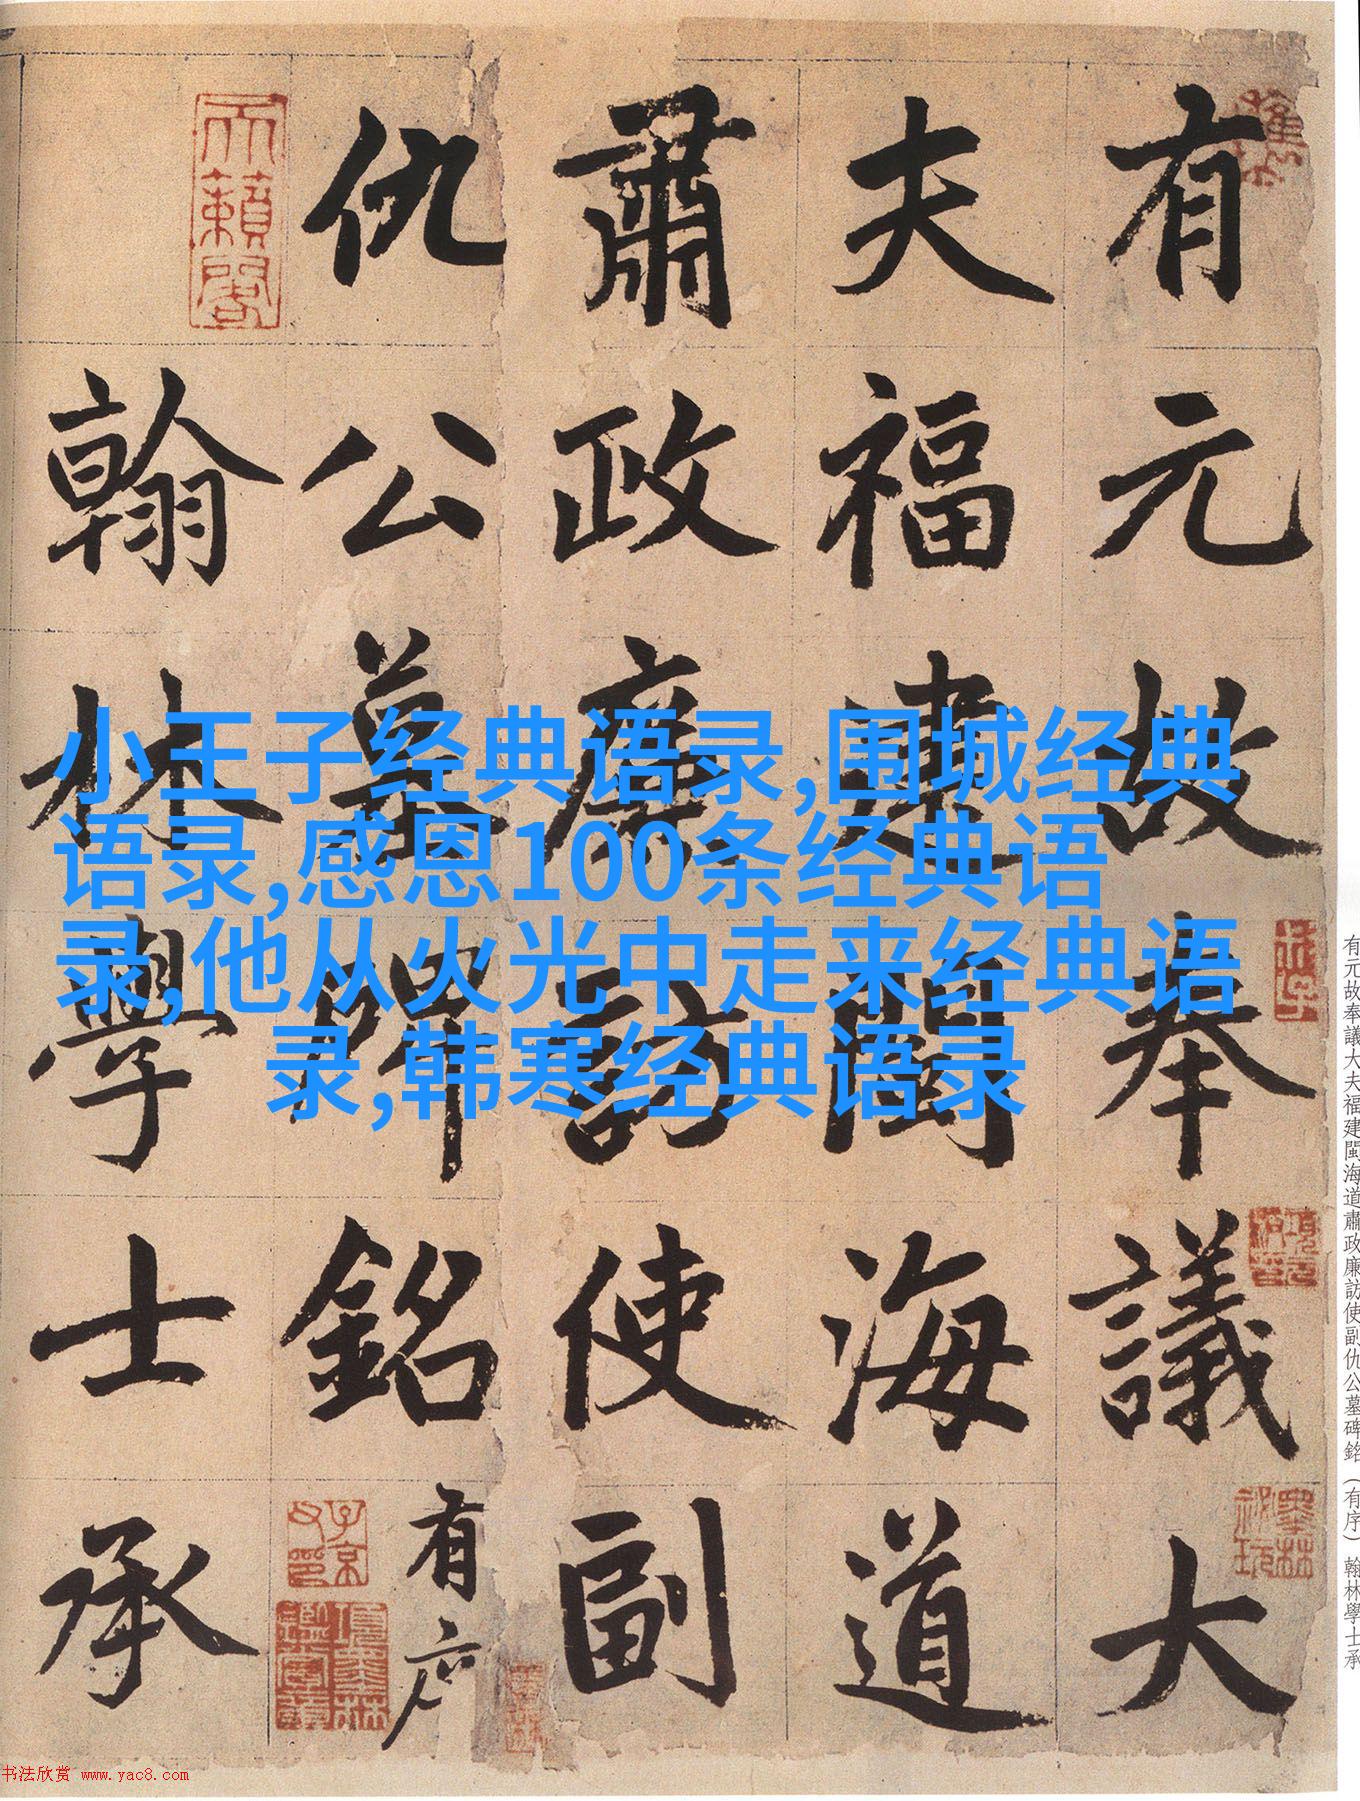 有元故奉議大
夫福建閩海道
肅政廉訪使副
仇公墓碑銘有序
翰林學士承
天籟閣
子京父印
小王子经典语录,围城经典
语录,感恩100条经典语
录,他从火光中走来经典语
录,韩寒经典语录
有元故奉議大夫福建閩海道肅政廉訪使副仇公墓碑銘（有序）翰林學士承
书法欣赏 www.yac8.com